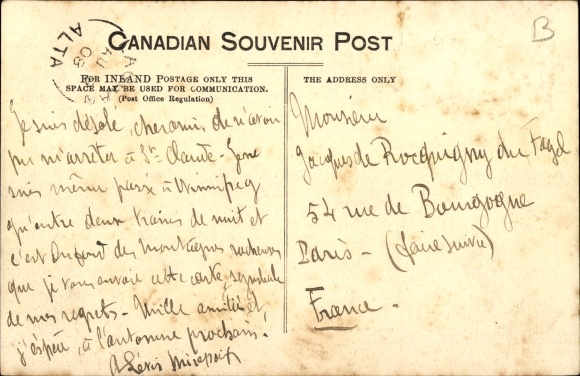 B
CANADIAN SOUVENIR POST
ALTA
08
FOR INLAND POSTAGE ONLY THIS
SPACE MAY BE USED FOR COMMUNICATION.
(Post Office Regulation)
THE ADDRESS ONLY
Je suis désolé, cher ami, de n'avoir
pu m'arrêter à Ste Claude. Je ne
suis même passé à Winnipeg
qu'entre deux trains de nuit et
c'est du fond des Montagnes rocheuses
que je vous envoie cette carte, symbole
de nos regrets. Mille amitiés et,
j'espère, à l'automne prochain.
A Levis Mirepoix
Monsieur
Jacques de Rocquigny du Fayel
54 rue de Bourgogne
Paris - (faire suivre)
France.